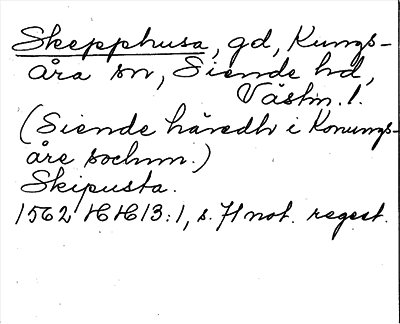 Skepphusa, gd, Kungs-
åra sn, Siende hd,
Västm. l.
(Siende häredh i Konungs-
åre sochnn.)
Skipusta.
1562 HH 13:1, s. 71 not. regest.